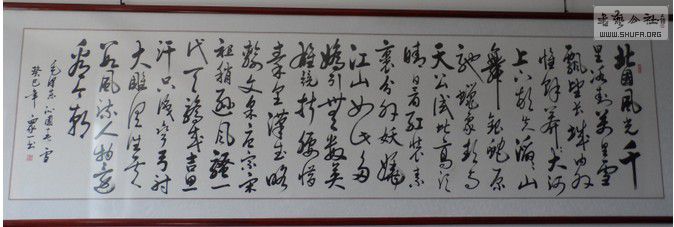 北国风光千
里冰封万里雪
飘望长城内外
惟余莽莽大河
上下顿失滔滔山
舞银蛇原
驰蜡象欲与
天公试比高须
晴日看红装素
裹分外妖娆
江山如此多
娇引无数英
雄竞折腰惜
秦皇汉武略
输文采唐宗宋
祖稍逊风骚一
代天骄成吉思
汗只识弯弓射
大雕俱往矣
数风流人物还
看今朝
毛泽东沁园春雪
癸巳年 书
书艺公社
WWW.SHUFA.ORG